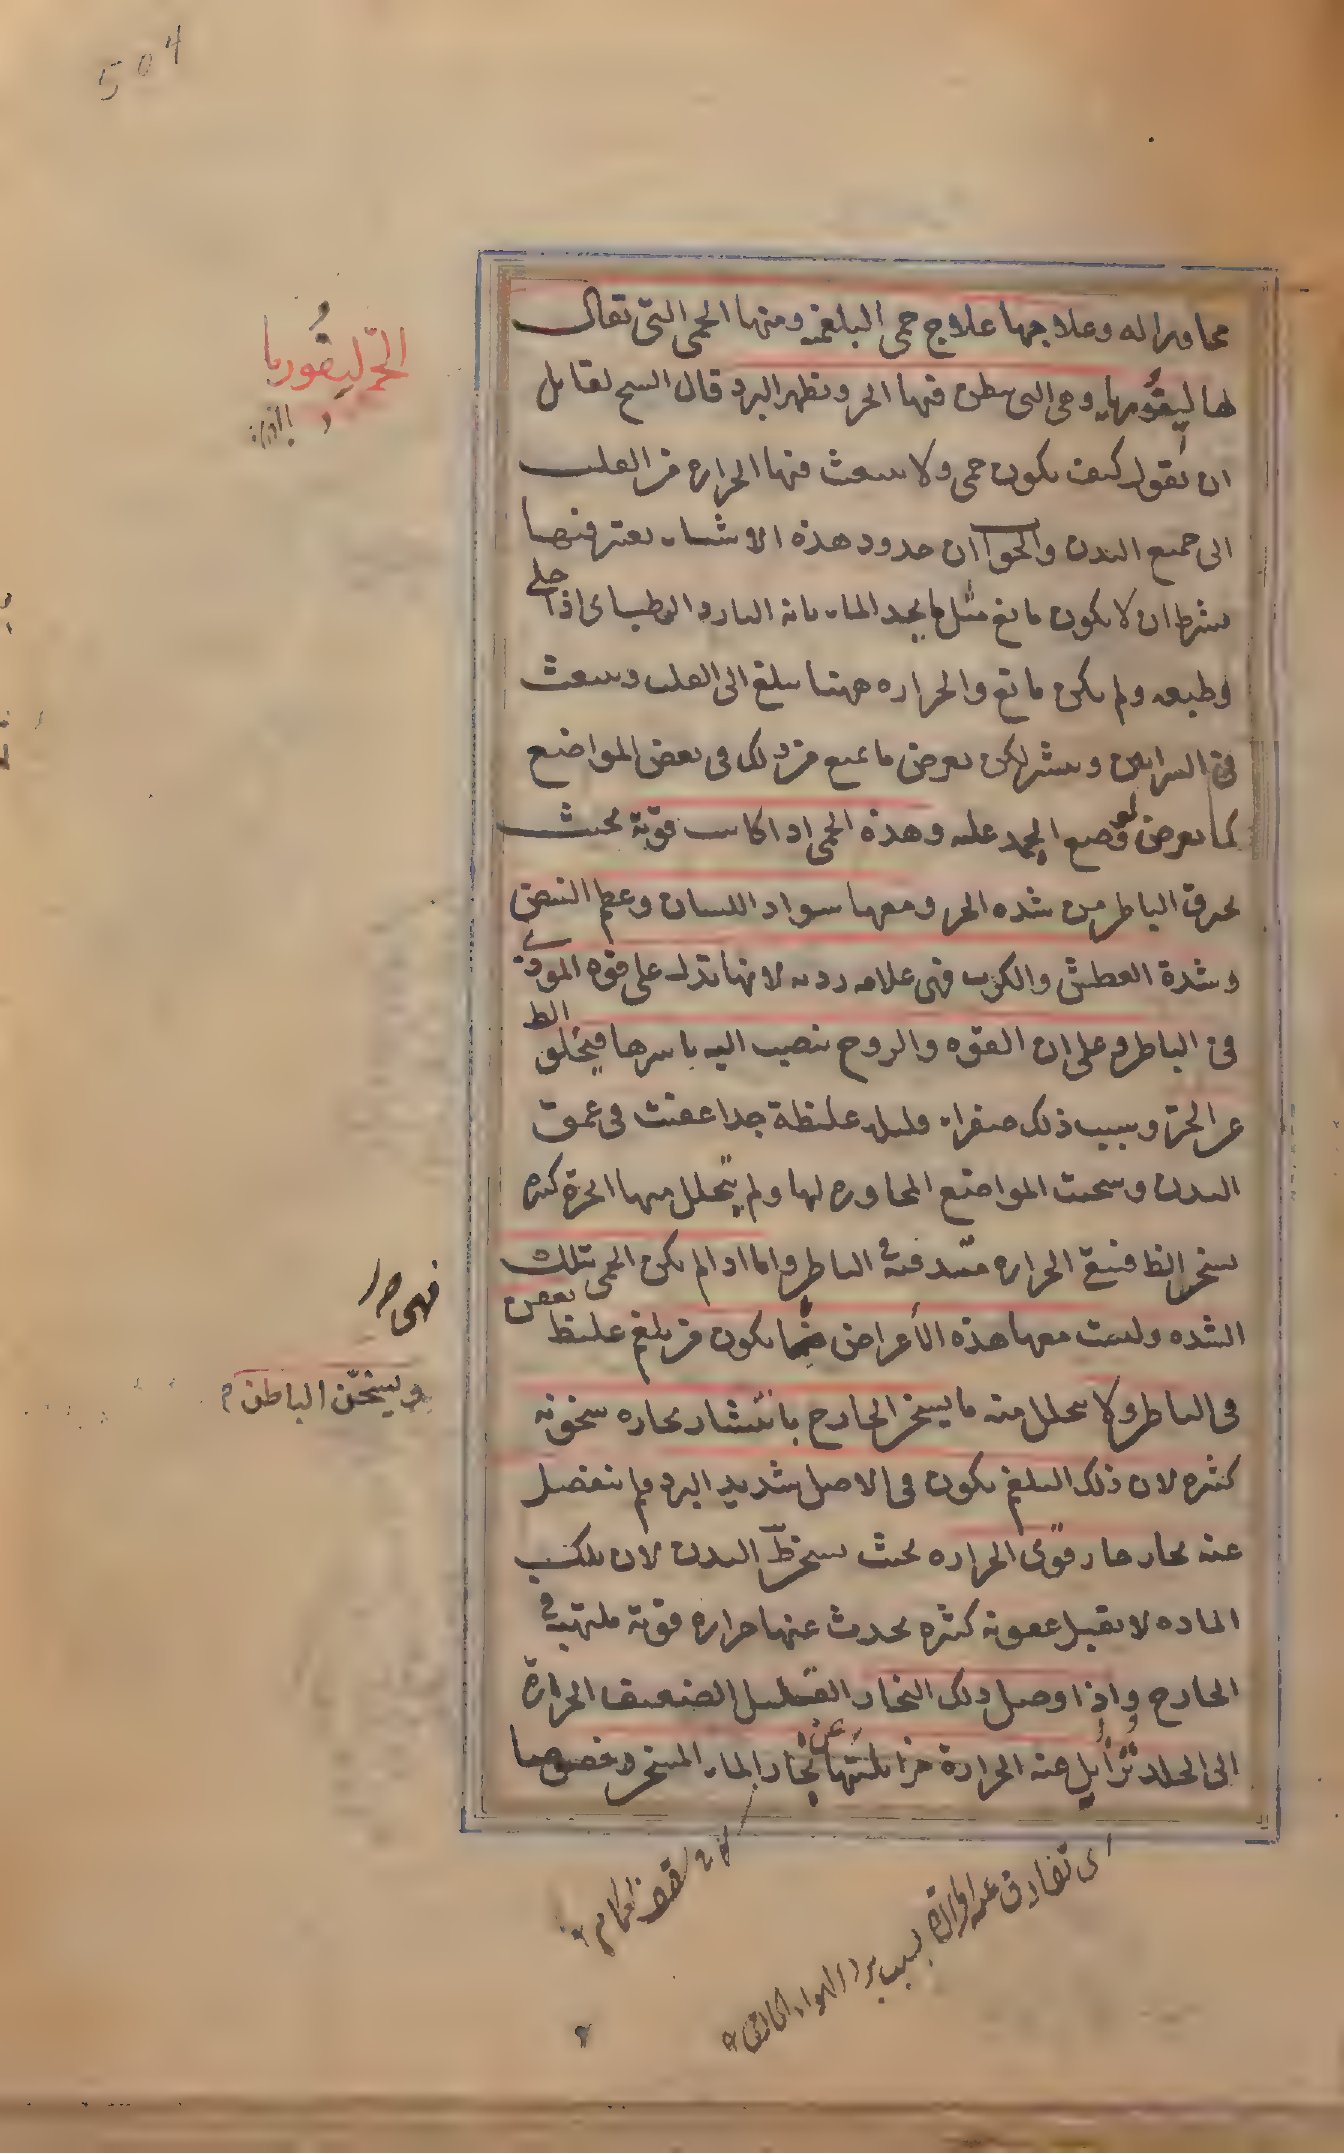 504
مجاورا له وعلاجها علاج حمى البلغمية ومنها الحمى التى تقال
لها ليفوريا وهى التى يبطن فيها الحر ويظهر البرد قال الشيخ لقايل
ان يقول كيف يكون حمى ولا ينبعث فيها الحرارة من القلب
الى جميع البدن والجواب ان حدود هذه الاشياء يعتبر فيها
بشرط ان لا يكون مانع مثل ما يحد الماء بانه البارد الرطب اى اذا خلى
وطبعه ولم يكن مانع والحرارة ههنا يبلغ الى القلب وينبعث
فى الشرايين وينشر لكن يعرض ما يمنع من ذلك فى بعض المواضع
كما يعرض لو وضع الجمد عليه وهذه الحمى اذا كانت قوية بحيث
يحرق الباطن من شدة الحر ومعها سواد اللسان وعظم النبض
وشدة العطش والكرب فهى علامة ردية لانها تدل على قوة الموذى
فى الباطن وعلى ان القوة والروح ينصب اليه باسرها فيخلو الظ
عن الحرة وسبب ذلك صفراء قليلة غليظة جدا عفنت فى عمق
البدن وسخنت المواضع المجاورة لها ولم يتحلل منها ابخرة كثيرة
يسخن الظ فيبقى الحرارة مندفنة فى الباطن واما اذا لم يكن الحمى بتلك
الشدة وليست معها هذه الأعراض فيما يكون من بلغم غليظ يعفن
فى الباطن ولا يتحلل منه ما يسخن الخارج بانتشار بخاره سخونة
كثيرة لان ذلك البلغم يكون فى الاصل شديد البرد فلم ينفصل
عنه بخار حار قوى الحرارة بحيث يسخن ظ البدن لان تلك
المادة لا يقبل عفونة كثيرة يحدث عنها حرارة قوية ملتهبة فى
الخارج واذا وصل ذلك البخار القليل الضعيف الحرارة
الى الجلد تزايل عنه الحرارة مزايلتها عن بخار الماء المسخن وخصوصا
الحمى ليفوريا
فهى ص
ويسخن الباطن
اى تفارق عنه الحرارة بسبب برد الهواء الخارجى